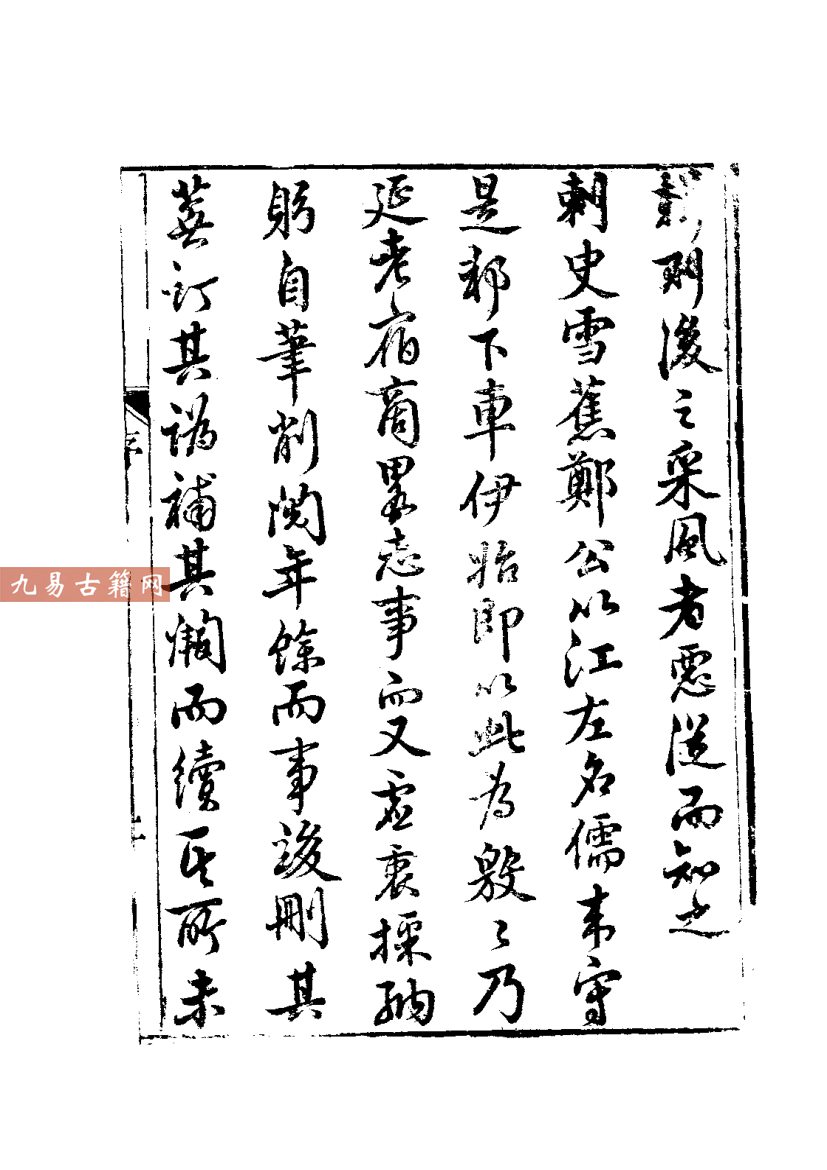 則後之采風者惡從而知之
刺史雪蕉鄭公以江左名儒來守
是邦下車伊始即以此為殷〻乃
延老宿商畧志事而又虛衷採納
躬自筆削閱年餘而事竣刪其
蕪訂其譌補其闕而續其所未
序
九易古籍网